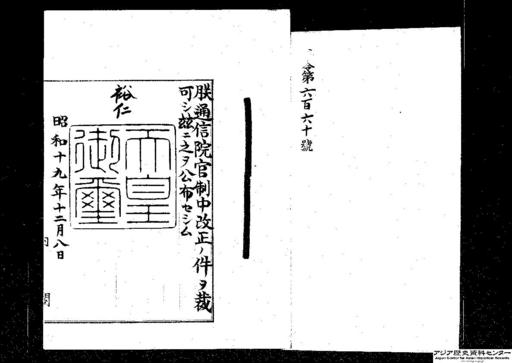 令第六百六十號
朕通信院官制中改正ノ件ヲ裁
可シ茲ニ之ヲ公布セシム
裕仁
天皇
御璽
昭和十九年十二月八日
内
閣
アジア歴史資料センター
Japan Center for Asian Historical Records